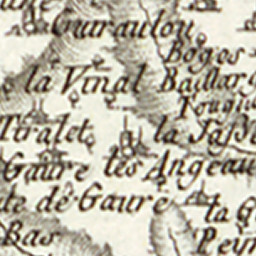 Guiraulou
Bogos
la Vinal Baillarg
Tiralet la Jasse
Gaure les Angeau
de Gaure la G
Bas Peyr